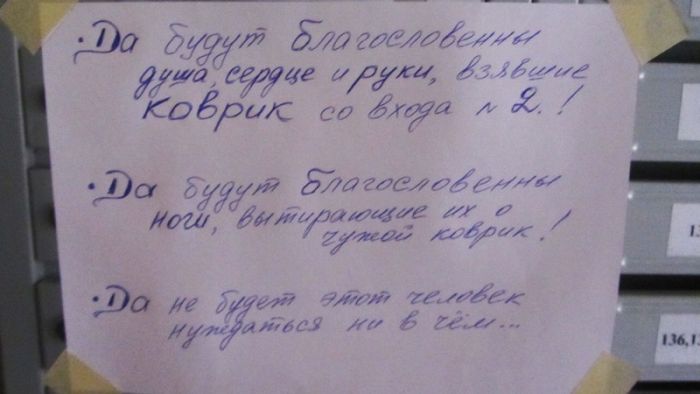 · Да будут благословенны
душа, сердце и руки, взявшие
коврик со входа № 2.!
· Да будут благословенны
ноги, вытирающие их о
чужой коврик!
· Да не будет этот человек
нуждаться ни в чём...
13
136,13